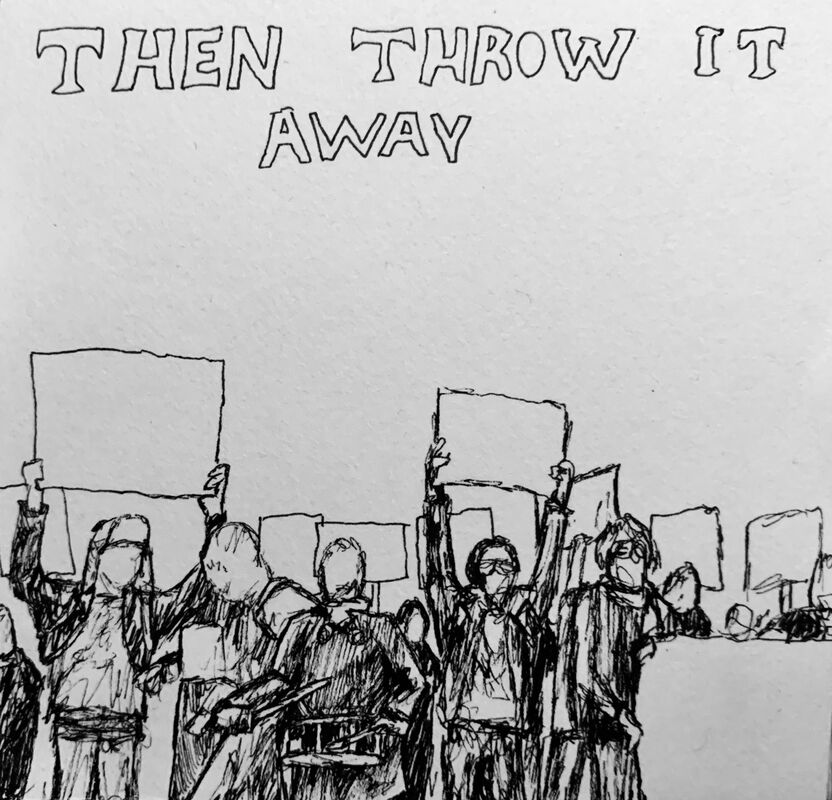 THEN THROW IT
AWAY